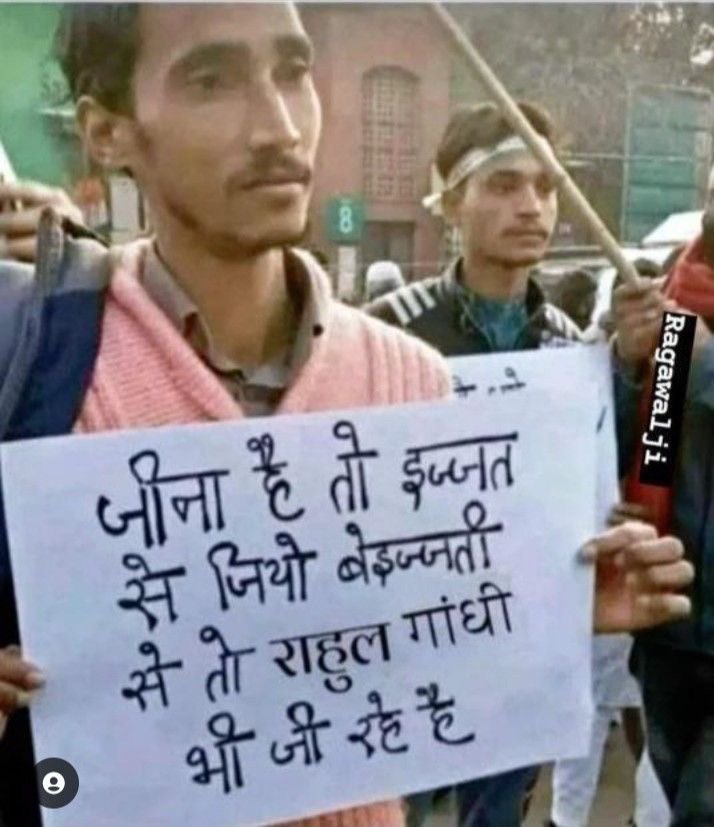 8
जीना है तो इज्जत
से जियो बेइज्जती
से तो राहुल गांधी
भी जी रहे है
Ragawalji